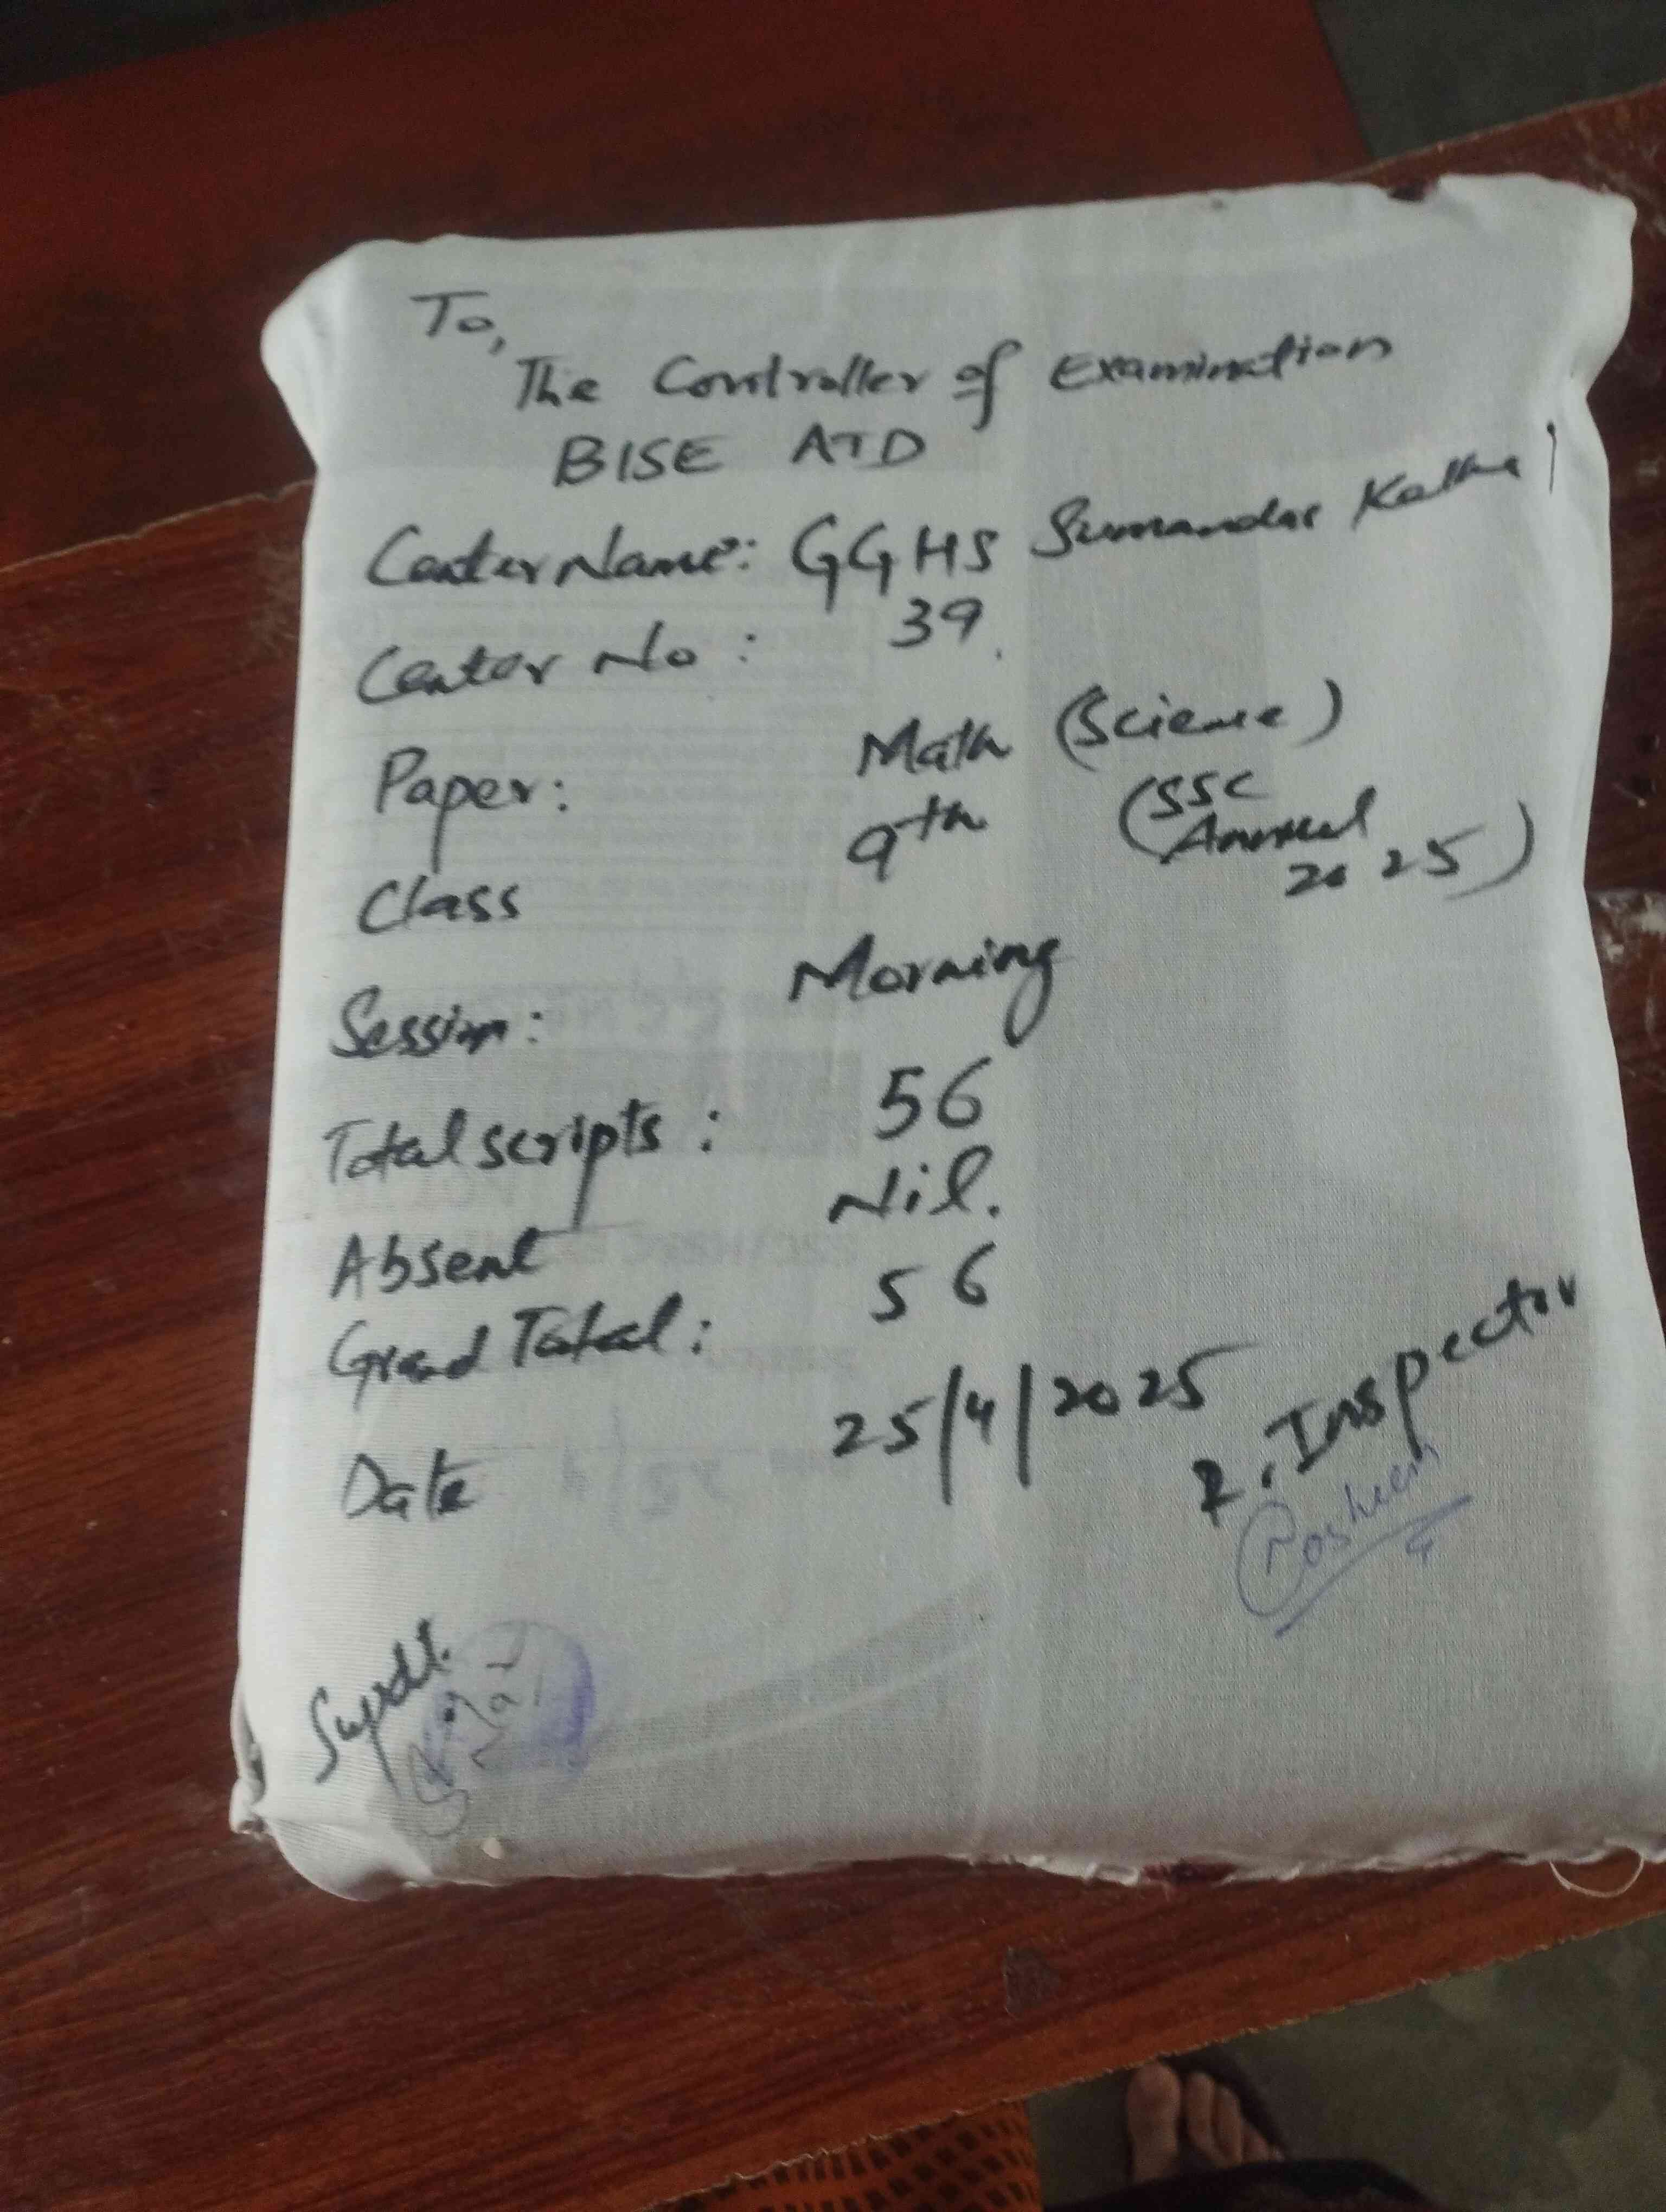 To,
The Controller of Examination
BISE ATD
Center Name: GGHS Sumandar Katha
Center No: 39.
Paper: Math (Science)
Class 9th (SSC Annual 2025)
Session: Morning
Total scripts: 56
Absent Nil.
Grand Total: 56
Date 25/4/2025
R. Inspector
Supdt.